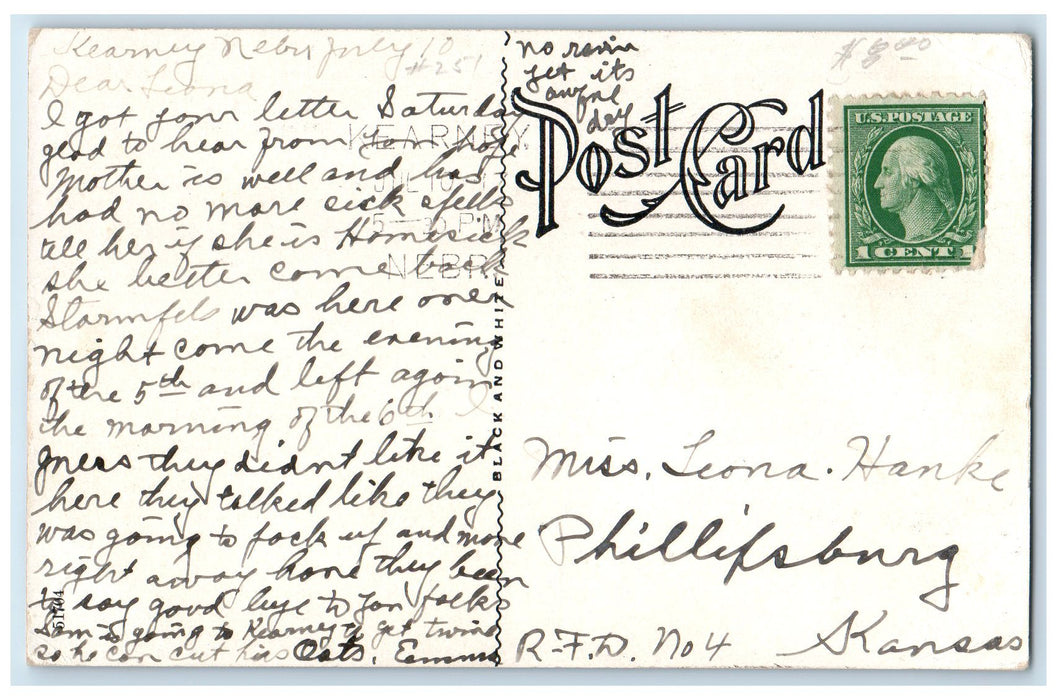 Kearney Nebr July 10
#251
Dear Leona
I got your letter Saturday
glad to hear from you hope
Mother is well and has
had no more sick spells
tell her if she is Homesick
she better come back
Starmfels was here over
night come the evening
of the 5th and left again
the morning of the 6th
guess they didnt like it
here they talked like they
was going to pack up and move
right away hope they been
to say good bye to you folks
Sam is going to Kearney to get twine
so he can cut his Oats. Emma
no rain
yet its
awful
dry
KEARNEY
5-30 PM
NEBR
BLACK AND WHITE
51704
Post Card
$8.00
U.S. POSTAGE
1 CENT 1
Miss. Leona. Hanke
Phillipsburg
Kansas
R-F.D. No 4